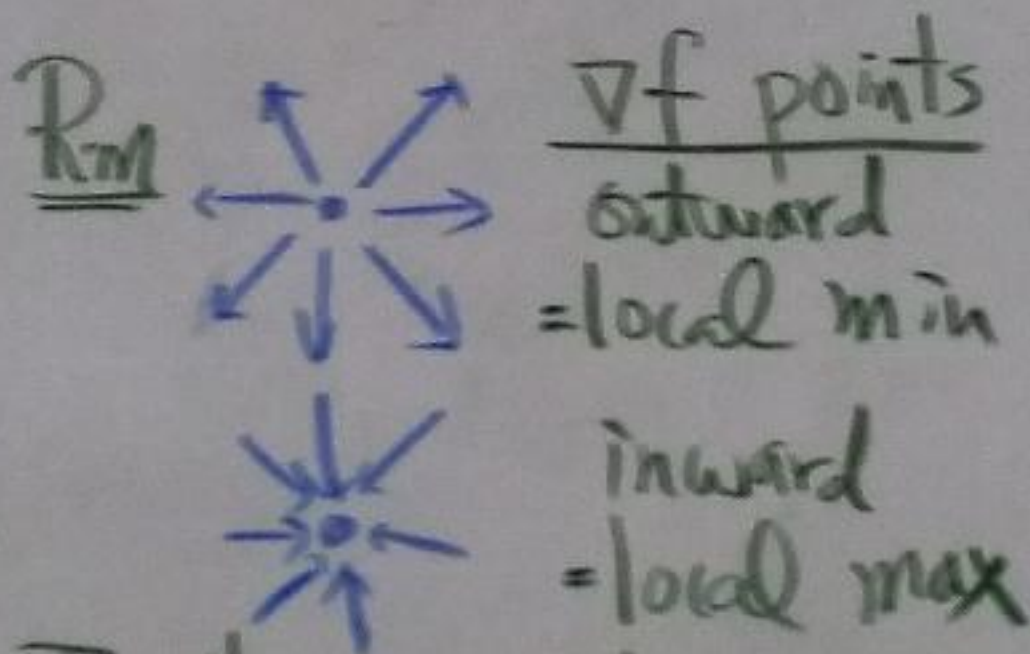 Rm
∇f points
outward
=local min
inward
=local max